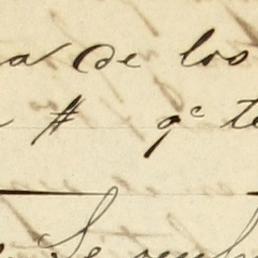 a de los
# qᵉ te
Se